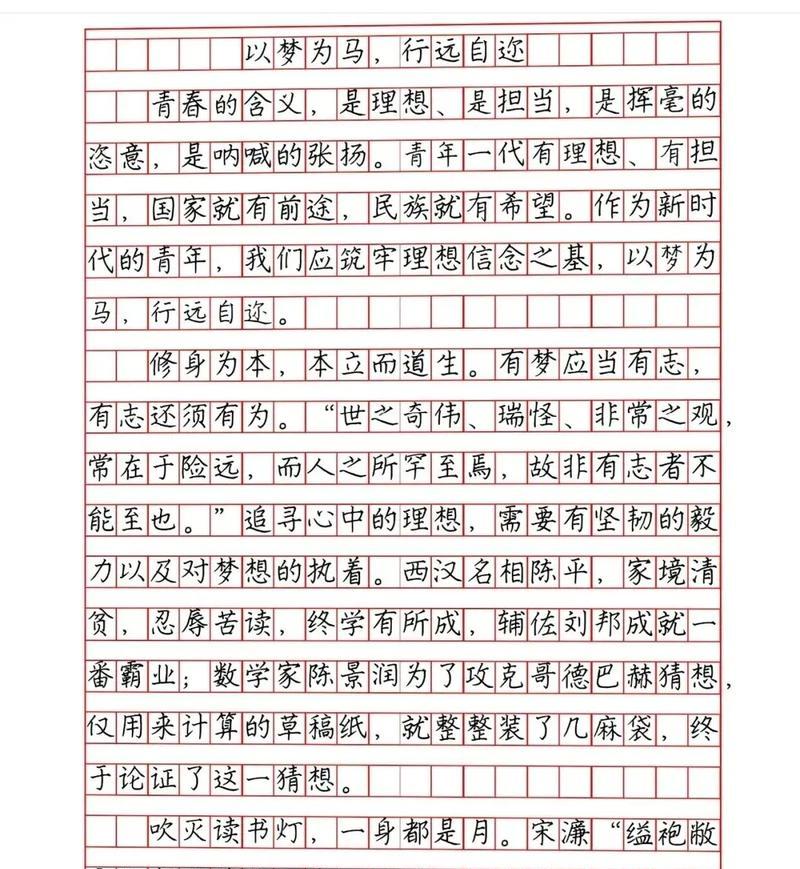 以梦为马，行远自迩
青春的含义，是理想、是担当，是挥毫的
恣意，是呐喊的张扬。青年一代有理想、有担
当，国家就有前途，民族就有希望。作为新时
代的青年，我们应筑牢理想信念之基，以梦为
马，行远自迩。
修身为本，本立而道生。有梦应当有志，
有志还须有为。“世之奇伟、瑰怪、非常之观，
常在于险远，而人之所罕至焉，故非有志者不
能至也。”追寻心中的理想，需要有坚韧的毅
力以及对梦想的执着。西汉名相陈平，家境清
贫，忍辱苦读，终学有所成，辅佐刘邦成就一
番霸业；数学家陈景润为了攻克哥德巴赫猜想，
仅用来计算的草稿纸，就整整装了几麻袋，终
于论证了这一猜想。
吹灭读书灯，一身都是月。宋濂“缊袍敝